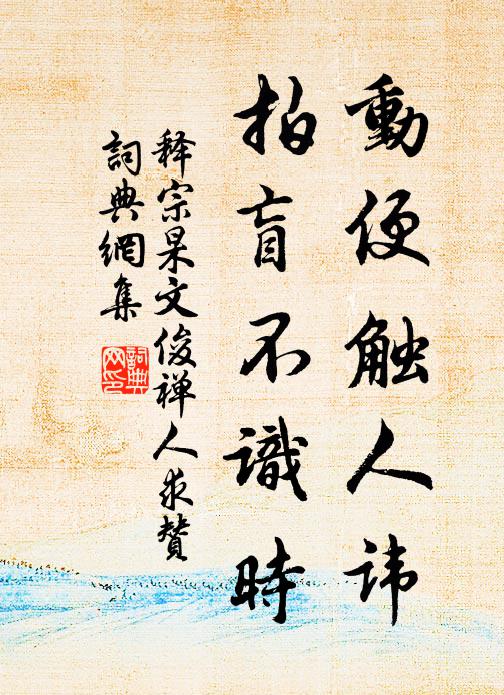 動便触人諱
拍盲不識時
释宗杲文俊禅人求贊
詞典網集
詞典
网印